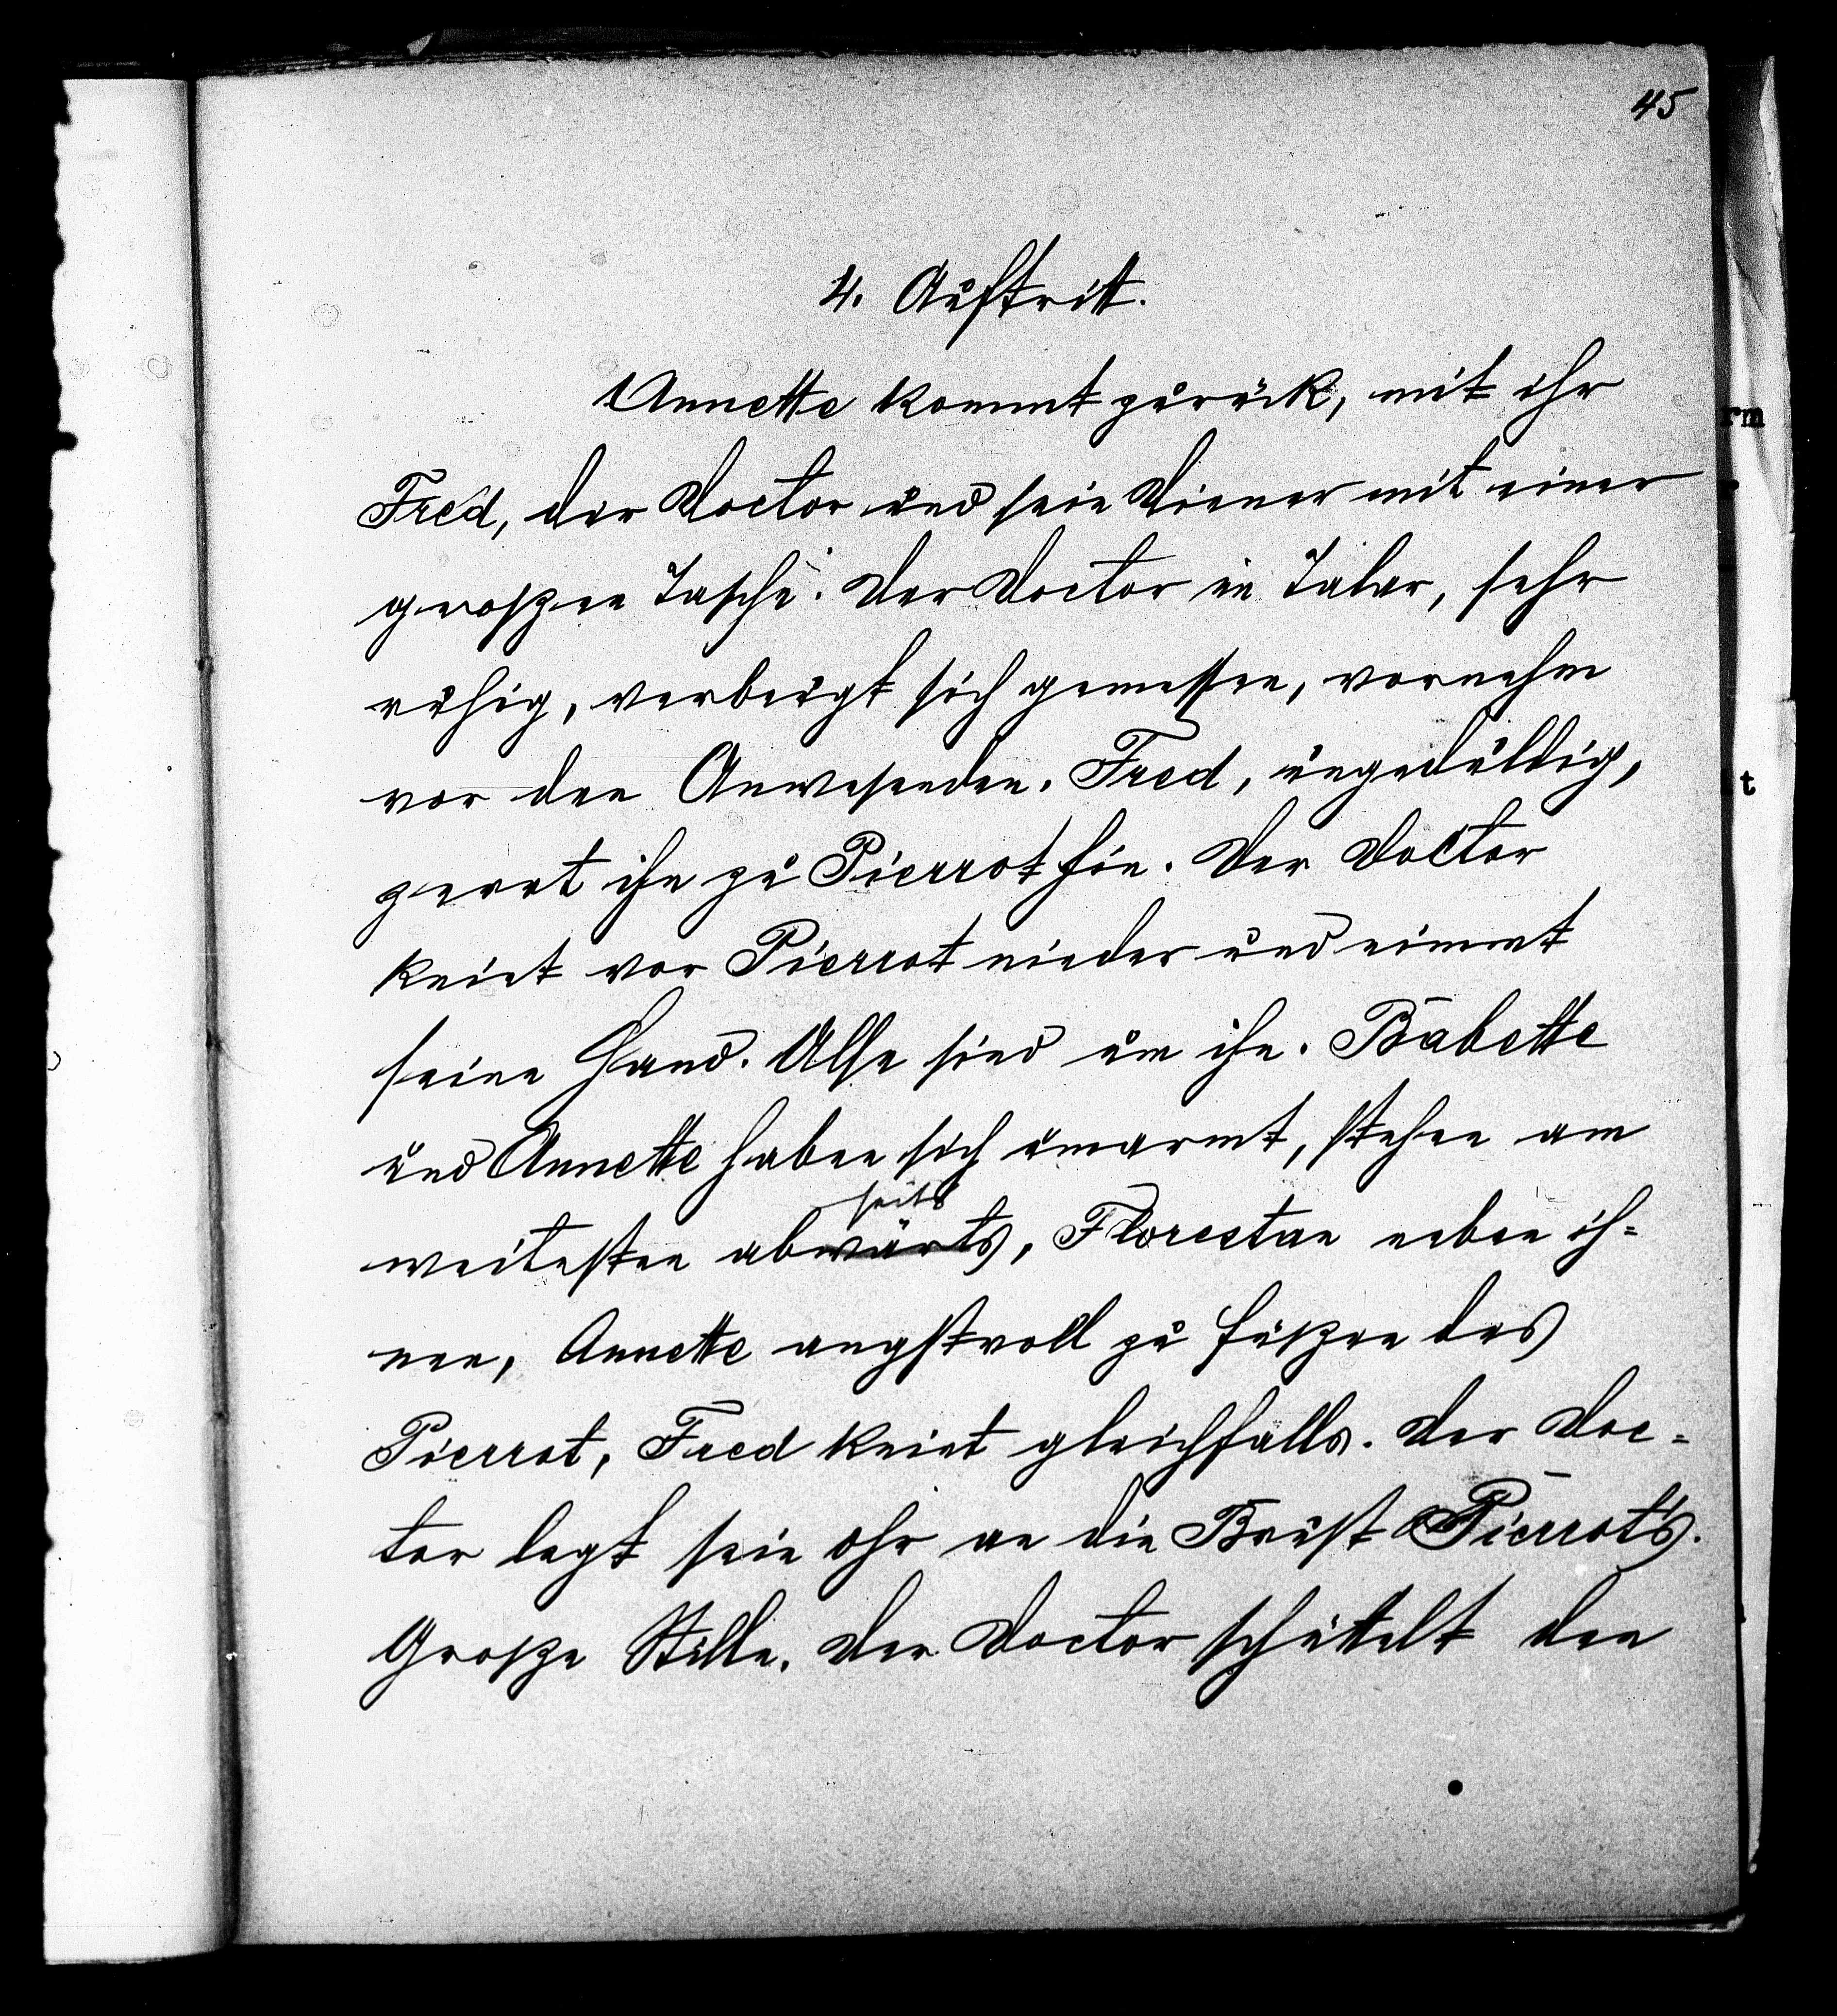 45
4. Auftritt.
Annette kommt zurück, mit ihr
Fred, der Doctor und sein Diener mit einer
groszen Tasche. Der Doctor in Talar, sehr
ruhig, verbeugt sich gemessen, vornehm
vor den Anwesenden. Fred, ungeduldig,
zerrt ihn zu Pierrot hin. Der Doctor
kniet vor Pierrot nieder und nimmt
seine Hand. Alle sind um ihn. Babette
und Annette haben sich umarmt, stehen am
seits
weitesten abwärts, Florestan neben ih=
nen, Annette angstvoll zu Füszen des
Pierrot, Fred kniet gleichfalls. Der Doc=
tor legt sein Ohr an die Brust Pierrot's.
Grosze Stille. Der Doctor schüttelt den
rm
t